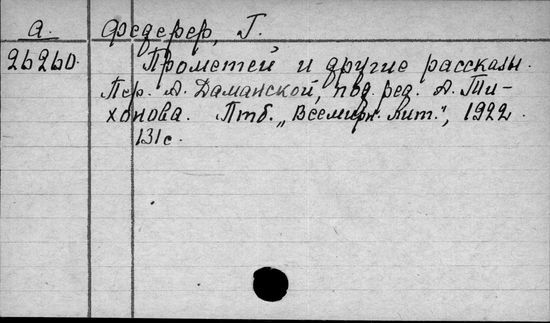 а. Федерер, Г.
26260. Прометей и другие рассказы.
Пер. А. Даманской, под ред. А. Ти-
хонова. Птб. „Всемирн. Лит.", 1922.
131 с.